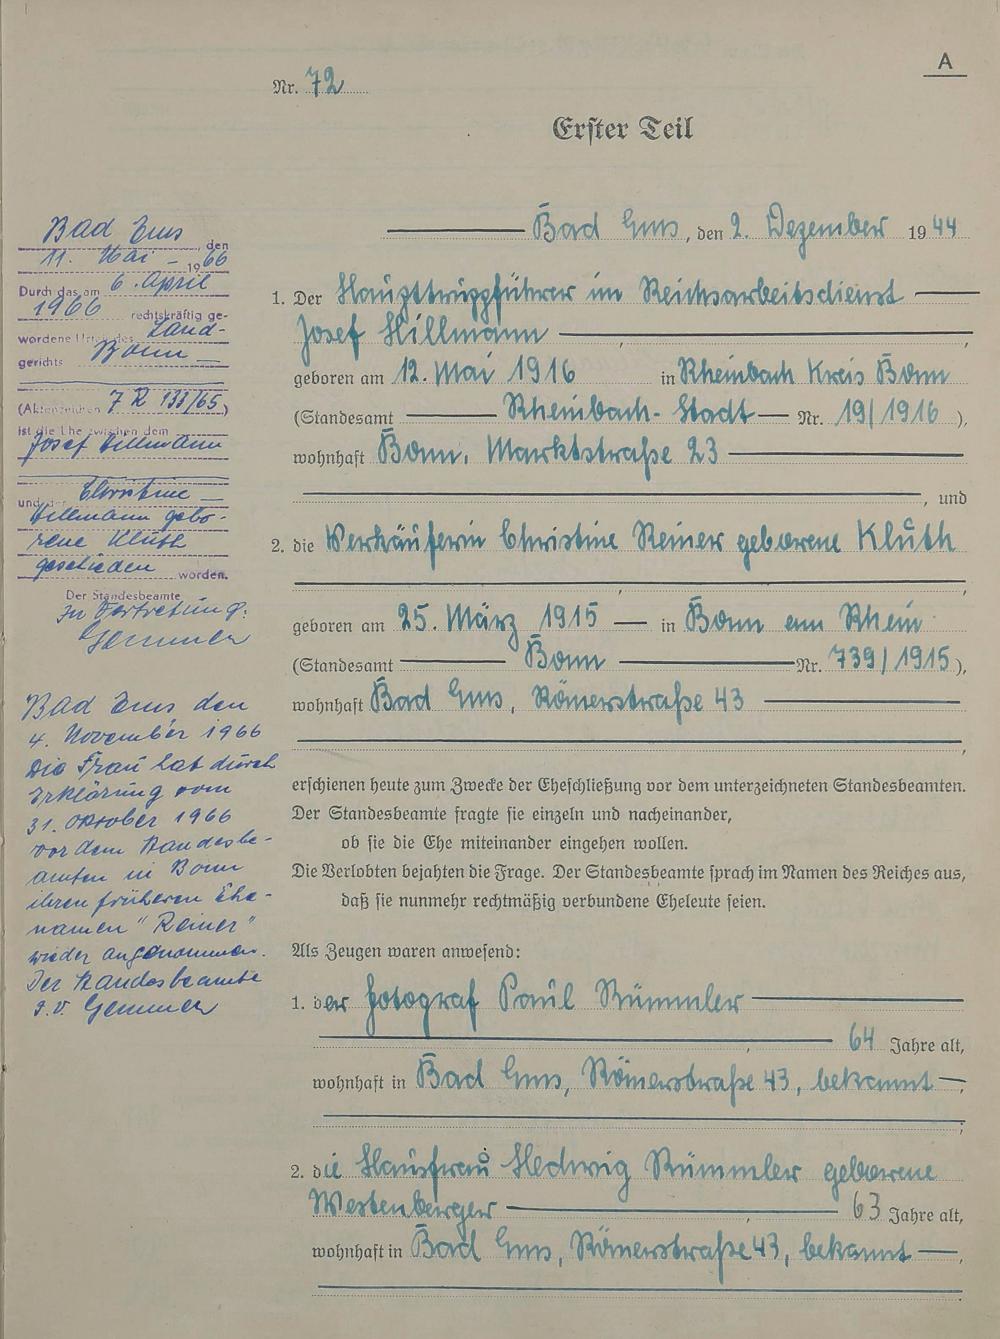 A
Nr. 72
Erster Teil
Bad Ems, den 2. Dezember 1944
1. Der Haupttruppführer im Reichsarbeitsdienst
Josef Hillmann
geboren am 12. Mai 1916 in Rheinbach Kreis Bonn
(Standesamt Rheinbach-Stadt Nr. 19/1916),
wohnhaft Bonn, Marktstraße 23
, und
2. die Verkäuferin Christine Reiner geborene Kluth
geboren am 25. März 1915 in Bonn am Rhein
(Standesamt Bonn Nr. 739/1915),
wohnhaft Bad Ems, Römerstraße 43
erschienen heute zum Zwecke der Eheschließung vor dem unterzeichneten Standesbeamten.
Der Standesbeamte fragte sie einzeln und nacheinander,
ob sie die Ehe miteinander eingehen wollen.
Die Verlobten bejahten die Frage. Der Standesbeamte sprach im Namen des Reiches aus,
daß sie nunmehr rechtmäßig verbundene Eheleute seien.
Als Zeugen waren anwesend:
1. der Fotograf Paul Rümmler
64 Jahre alt,
wohnhaft in Bad Ems, Römerstraße 43, bekannt,
2. die Hausfrau Hedwig Rümmler geborene
Westenberger 63 Jahre alt,
wohnhaft in Bad Ems, Römerstraße 43, bekannt,
Bad Ems, den
11. Mai 1966
Durch das am 6. April
1966 rechtskräftig ge-
wordene Urteil des Land-
gerichts Bonn
(Aktenzeichen 7 R 138/65)
ist die Ehe zwischen dem
Josef Hillmann
und der Christine
Hillmann gebo-
rene Kluth
geschieden worden.
Der Standesbeamte
In Vertretung:
Gemmer
Bad Ems den
4. November 1966
Die Frau hat durch
Erklärung vom
31. Oktober 1966
vor dem Standesbe-
amten in Bonn
ihren früheren Ehe-
namen "Reiner"
wieder angenommen.
Der Standesbeamte
I.V. Gemmer